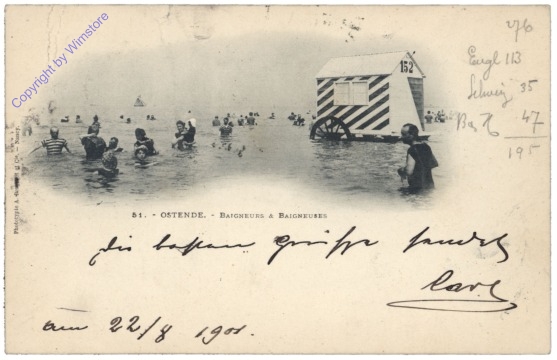 Copyright by Wimstore
276
Engl 113
Schweiz 35
47
195
152
51. - OSTENDE. - BAIGNEURS & BAIGNEUSES
die besten Grüsse sendet
Carl
am 22/8 1901.